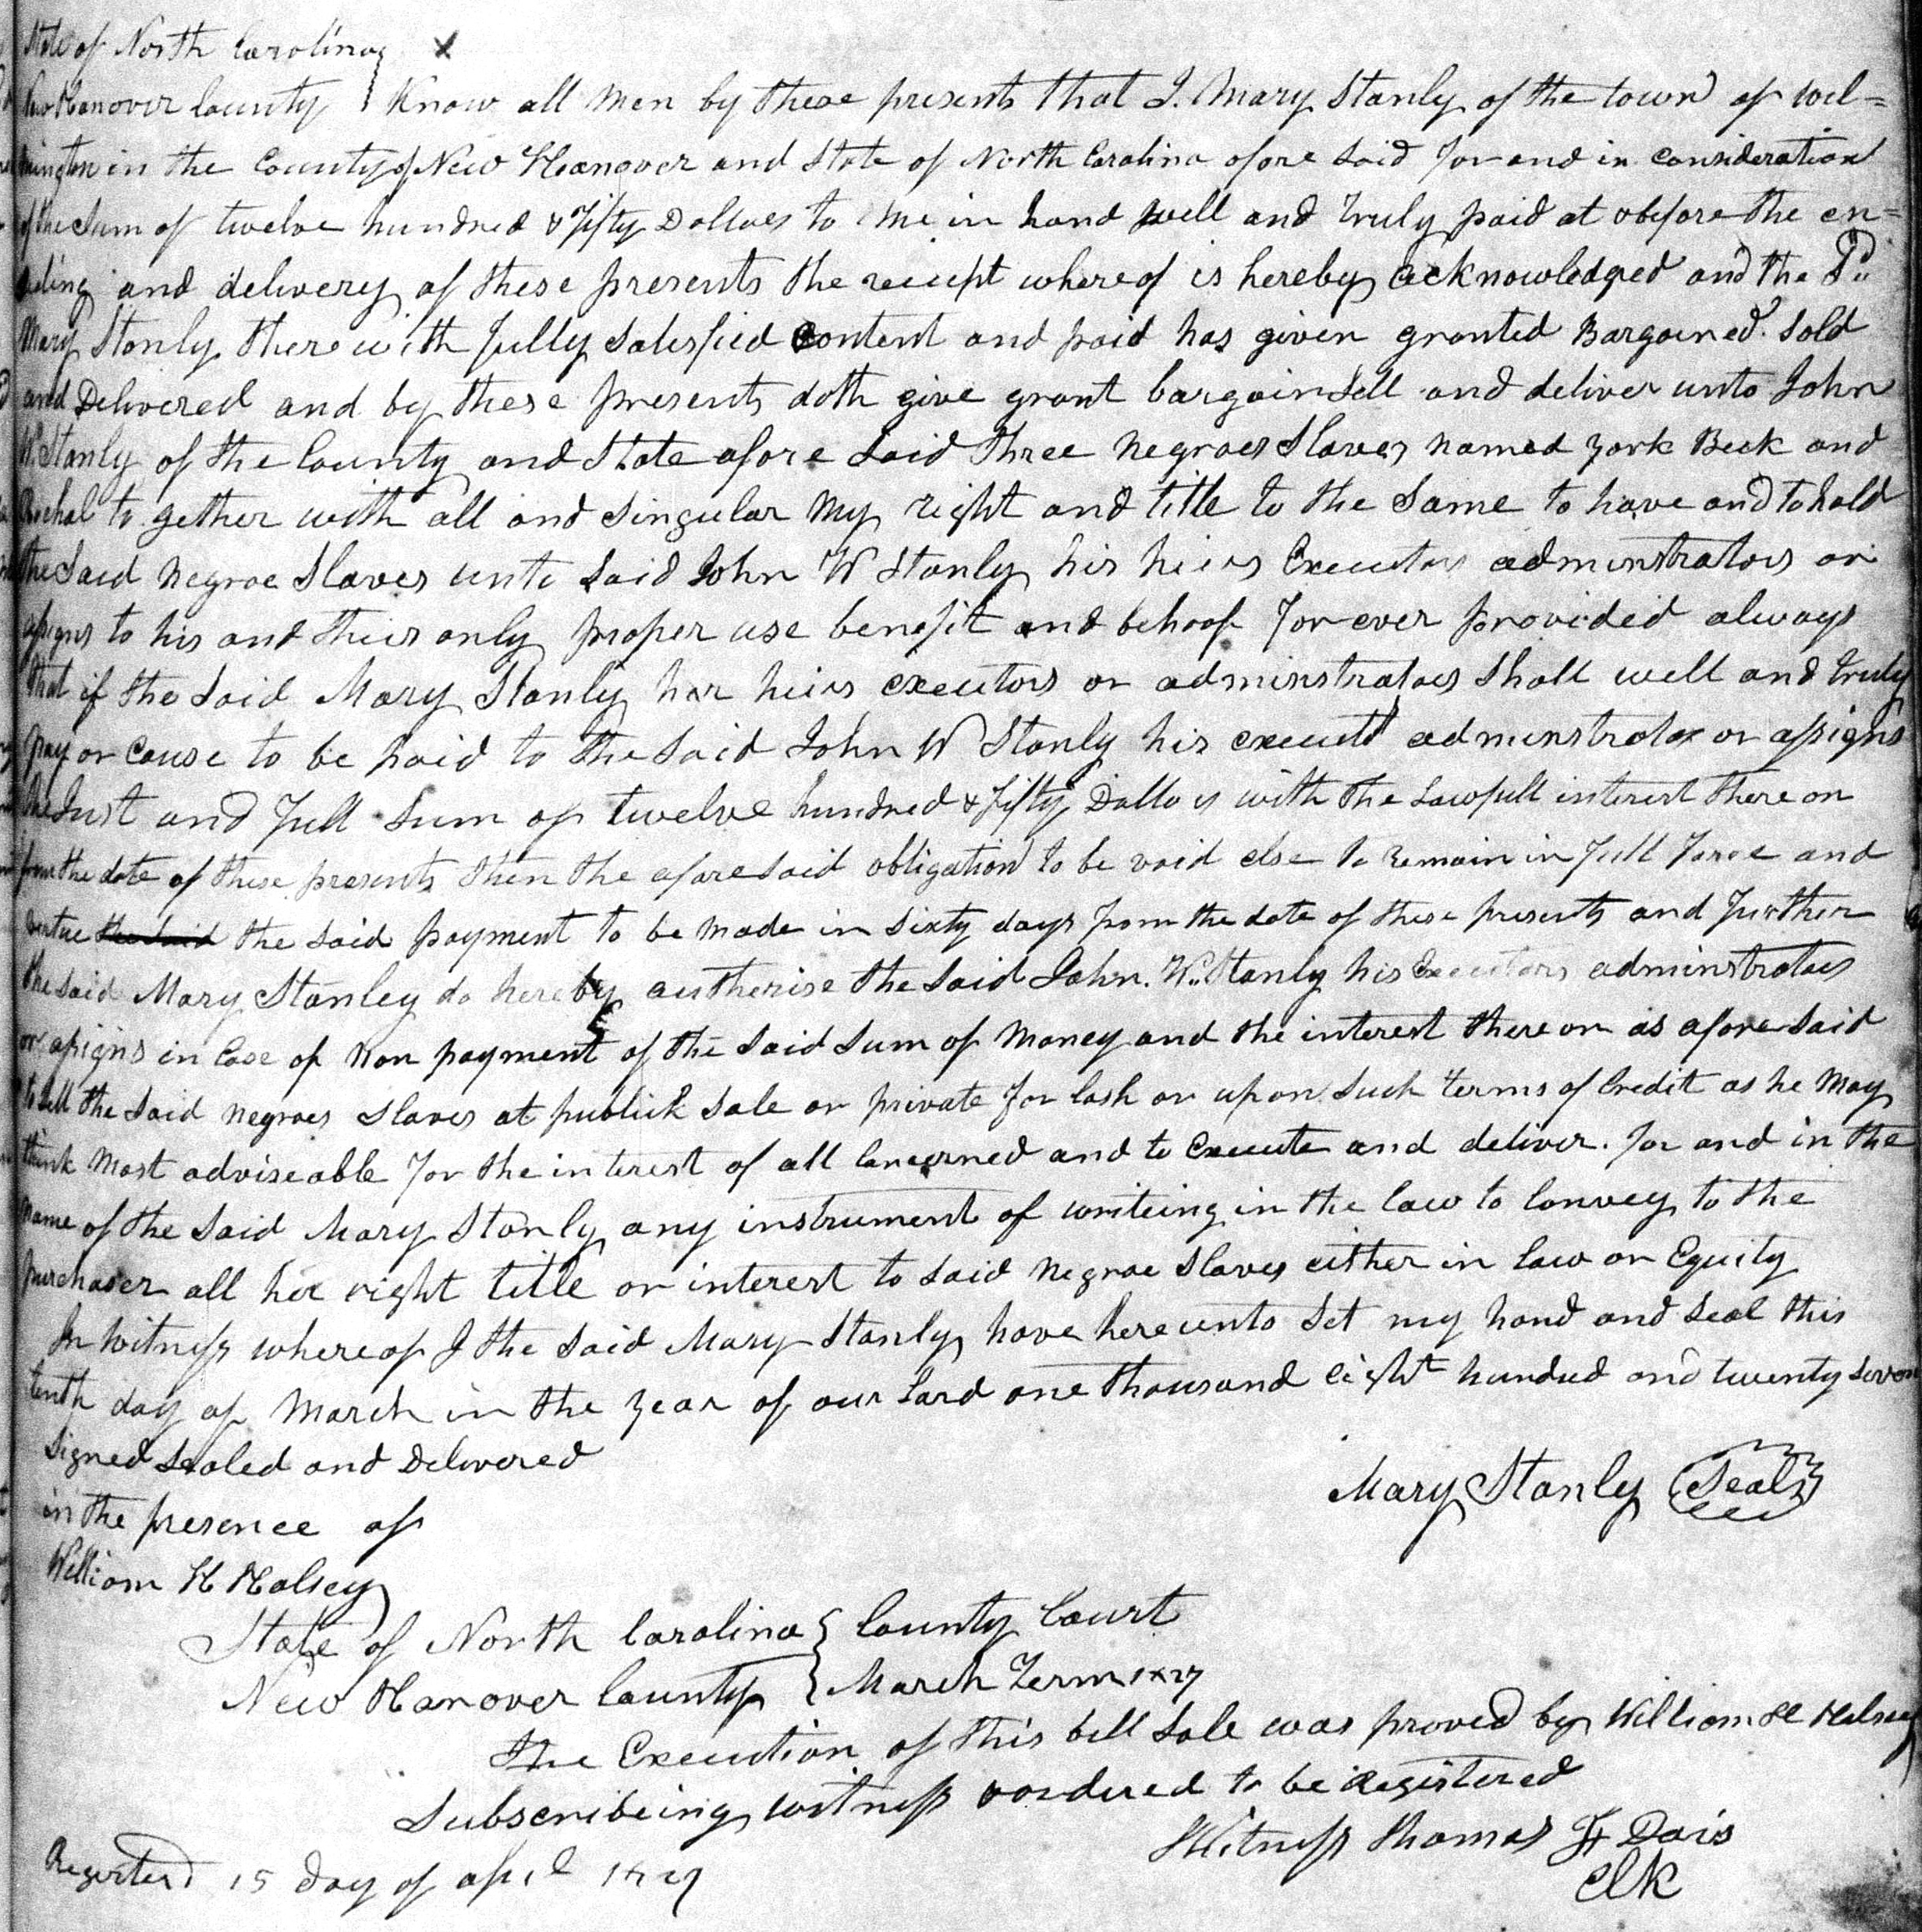 State of North Carolina
New Hanover County } Know all men by these presents that I. Mary Stanly of the town of Wil=
mington in the County of New Hanover and State of North Carolina afore Said for and in consideration
of the Sum of twelve hundred & Fifty Dollars to me in hand well and truly paid at obefore the en=
and delivery of these presents the reciept whereof is hereby acknowledged and the Sd
Mary Stanly therewith fully Satesfied Content and paid has given granted Bargained Sold
and Delivered and by these presents doth give grant bargain Sell and deliver unto John
W Stanly of the County and State afore Said three negroes Slaves named york Beck and
Rachal to gether with all and Singular my right and title to the Same to have and to hold
the Said negroe Slaves unto Said John W Stanly his heirs Executors adminstrators or
assigns to his and their only proper use benefit and behoof For ever provided always
that if the Said Mary Stanly her heirs executors or adminstrators Shall well and truly
pay or Cause to be paid to the Said John W Stanly his adminstrator or assigns
the Just and Full Sum of twelve hundred & Fifty Dollars with the Lawfull interest there on
from the date of these presents then the aforesaid obligation to be void else to remain in Full Force and
virtue the Said the said payment to be made in Sixty days from the date of these presents and Further
the Said Mary Stanley do hereby autherise the Said John. W. Stanly his Executors adminstrators
or asigns in Case of non payment of the Said Sum of money and the interest there on as afore Said
to Sell the Said negroes Slaves at publick Sale or private for Cash or upon Such terms of Credit as he may
think most adviseable for the interest of all Concerned and to Execute and deliver. for and in the
name of the Said Mary Stanly any instrument of writeing in the law to Convey to the
purchaser all her right title or interest to Said negroe Slaves either in law or Equity
In Witness whereof I the Said Mary Stanly have here unto Set my hand and Seal this
tenth day of March in the year of our Lord one thousand eight hundred and twenty Seven
Signed Sealed and Delivered
Mary Stanly (Seal)
in the presence of
William H Halsey
State of North Carolina } County Court
New Hanover County } March Term 1827
The Execution of this bill Sale was proved by William H Halsey
Subscribeing witness & ordered to be Registered
Witness Thomas F Davis
Clk
Registerd 15 day of april 1827